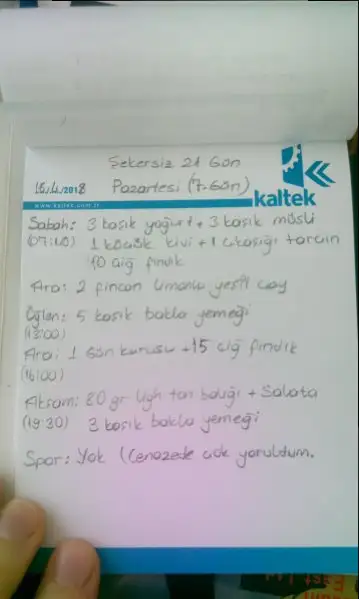 Şekersiz 21 Gün
16/4/2018 Pazartesi (7.Gün)
kaltek
www.kaltek.com.tr
Sabah: 3 kaşık yoğurt + 3 kaşık müsli
(07:40) 1 küçük kivi + 1 ç.kaşığı tarçın
10 çiğ fındık
Ara: 2 fincan limonlu yeşil çay
Öğlen: 5 kaşık bakla yemeği
(13:00)
Ara: 1 Gün kurusu + 15 çiğ fındık
(16:00)
Akşam: 80 gr ton balığı + Salata
(19:30) 3 kaşık bakla yemeği
Spor: Yok (Cenazede çok yoruldum.